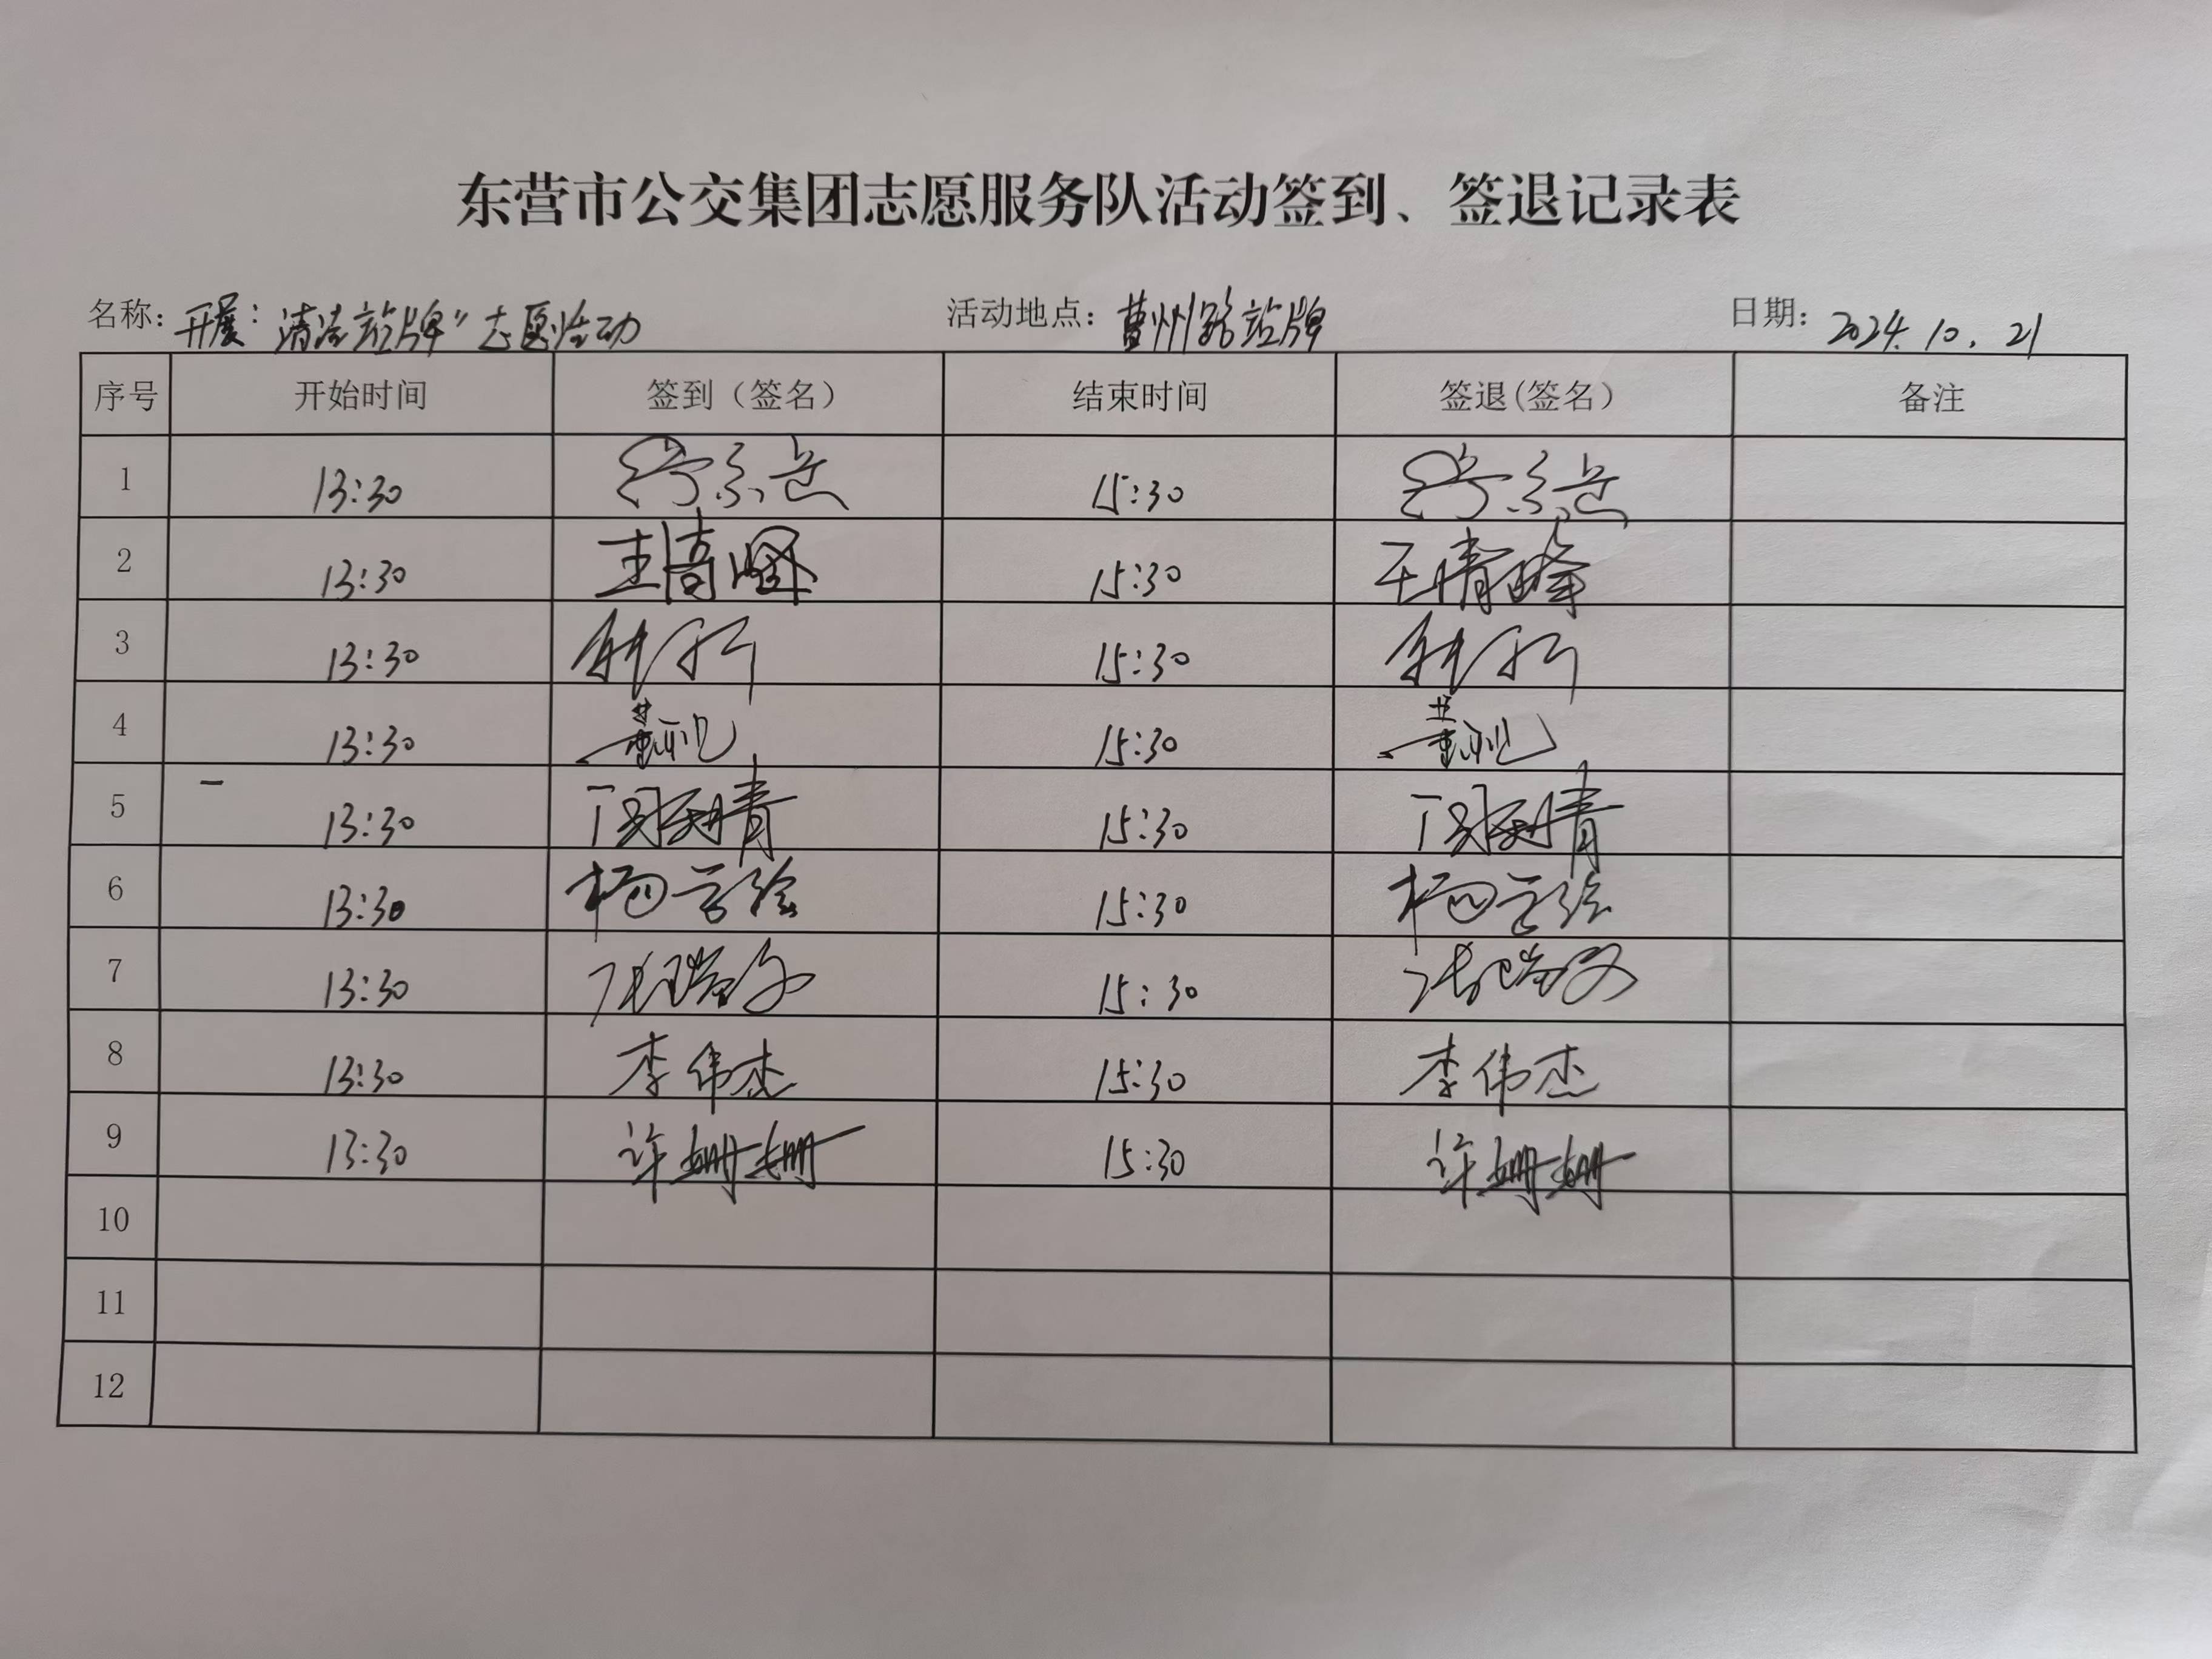 东营市公交集团志愿服务队活动签到、签退记录表
名称：开展：清洁站牌"志愿活动 活动地点：曹州路站牌 日期：2024.10.21
序号 开始时间 签到（签名） 结束时间 签退(签名） 备注
1 13:30 15:30
2 13:30 王 15:30 王晴峰
3 13:30 15:30
4 13:30 董 15:30 董
5 13:30 15:30
6 13:30 杨云绘 15:30 杨云绘
7 13:30 张瑞 15:30 张瑞
8 13:30 李伟杰 15:30 李伟杰
9 13:30 许姗姗 15:30 许姗姗
10
11
12